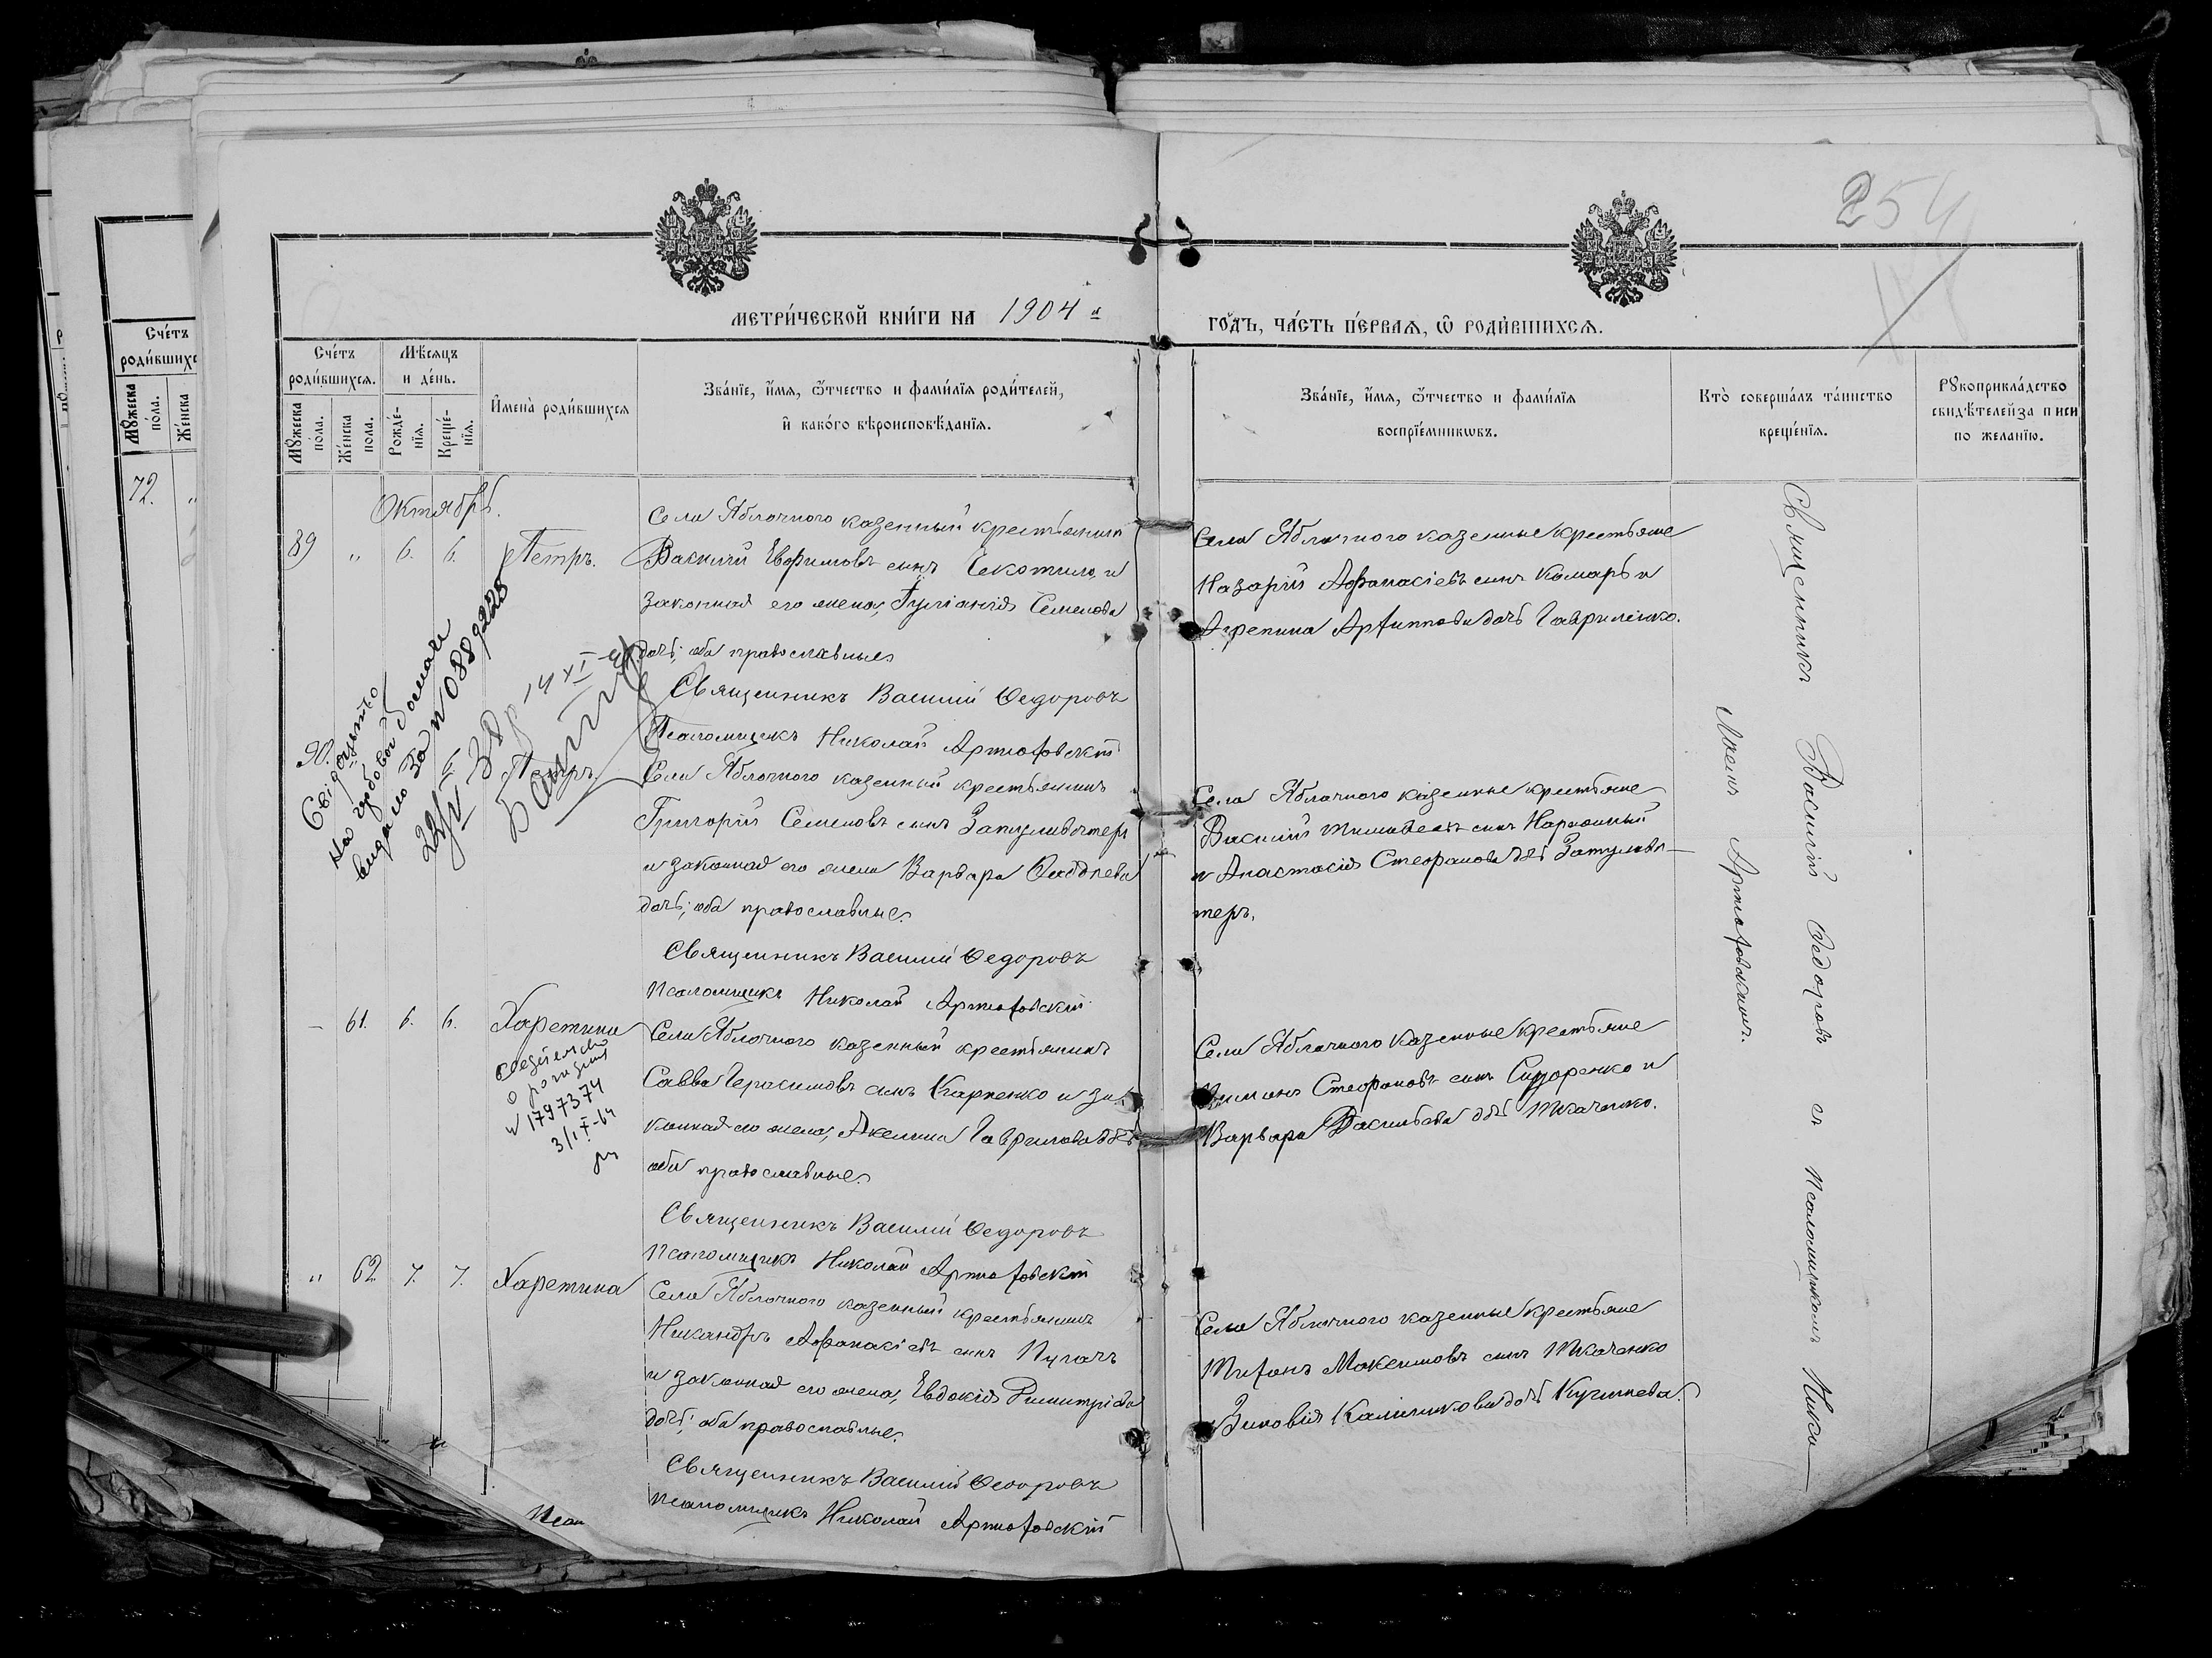 254
МЕТРИ́ЧЕСКОЙ КНИ́ГИ НА 1904 й
ГО́ДЪ, ЧА́СТЬ ПЕ́РВАЯ, Ѿ РОДИ́ВШИХСЯ.
Сче́тъ
роди́вшихся.
Мꙋ́жеска
по́ла.
Же́нска
пола.
Мѣ́сяцъ
и де́нь.
Рожде́-
нія.
Креще́-
нія.
И́мена̀ роди́вшихся
Зва́ніе, и́мя, ѿ́тчество и фами́лія роди́телей,
и҆ како́го вѣроисповѣ́данія.
Зва́ніе, и́мя, ѿ́тчество и фами́лія
воспріе́мникѡвъ.
Кто̀ соверша́лъ та́инство
креще́нія.
Рꙋкоприкла́дство
свидѣ́телей за п иси
по жела́нію.
Сче́тъ
роди́вшихс
Мꙋ́жеска
по́ла.
Же́нска
72. "
Октябрь.
89 " 6. 6. Петръ.
Села Яблочного казенный крестьянинъ
Василій Евфимовъ сынъ Чекотило, и
законная его жена, Гуліанія Семенова
дочь; оба православные
Священникъ Василій Ѳедоровъ
Псаломщикъ Николай Артюховскій
Села Яблочного казенные крестьяне
Назарій Аѳанасіевъ сынъ Комаръ и
Агрепина Архиппова дочь Гавриленко.
90.
Петръ.
Свідоцтво
на гробовой
видано За N 088922
Села Яблочного казенный крестьянинъ
Григорій Семеновъ сынъ Затуливитеръ
и законная его жена Варвара Ѳаддеева
дочь; оба православные.
Священникъ Василій Ѳедоровъ
Псаломщикъ Николай Артюховскій
Села Яблочного казенные крестьяне
Василій Тимоѳеевъ сынъ Нарожный
и Анастасія Стефанова дчь Затуливи-
теръ.
- 61. 6. 6. Харетина
1797374
Села Яблочного казенный крестьянинъ
Савва Герасимовъ сынъ Карпенко и за-
конная его жена, Акелина Гаврилова дчь
оба православные.
Священникъ Василій Ѳедоровъ
Псаломщикъ Николай Артюховскій
Села Яблочного казенные крестьяне
Пименъ Стефановъ сынъ Сидоренко и
Варвара Васильева дчь Ткаченко.
" 62 7. 7. Харетина
Села Яблочного казенный крестьянинъ
Никандръ Аѳанасіевъ сынъ Пугачъ
и законная его жена, Евдокія Димитріева
дочь; оба православные.
Священникъ Василій Ѳедоровъ
псаломщикъ Николай Артюховскій
Села Яблочного казенные крестьяне
Тихонъ Максимовъ сынъ Ткаченко
и Зиновія Калиникова дочь
Священникъ Василій Ѳедоровъ съ Псаломщикомъ Нико-
лаемъ Артюховскимъ.
Псал